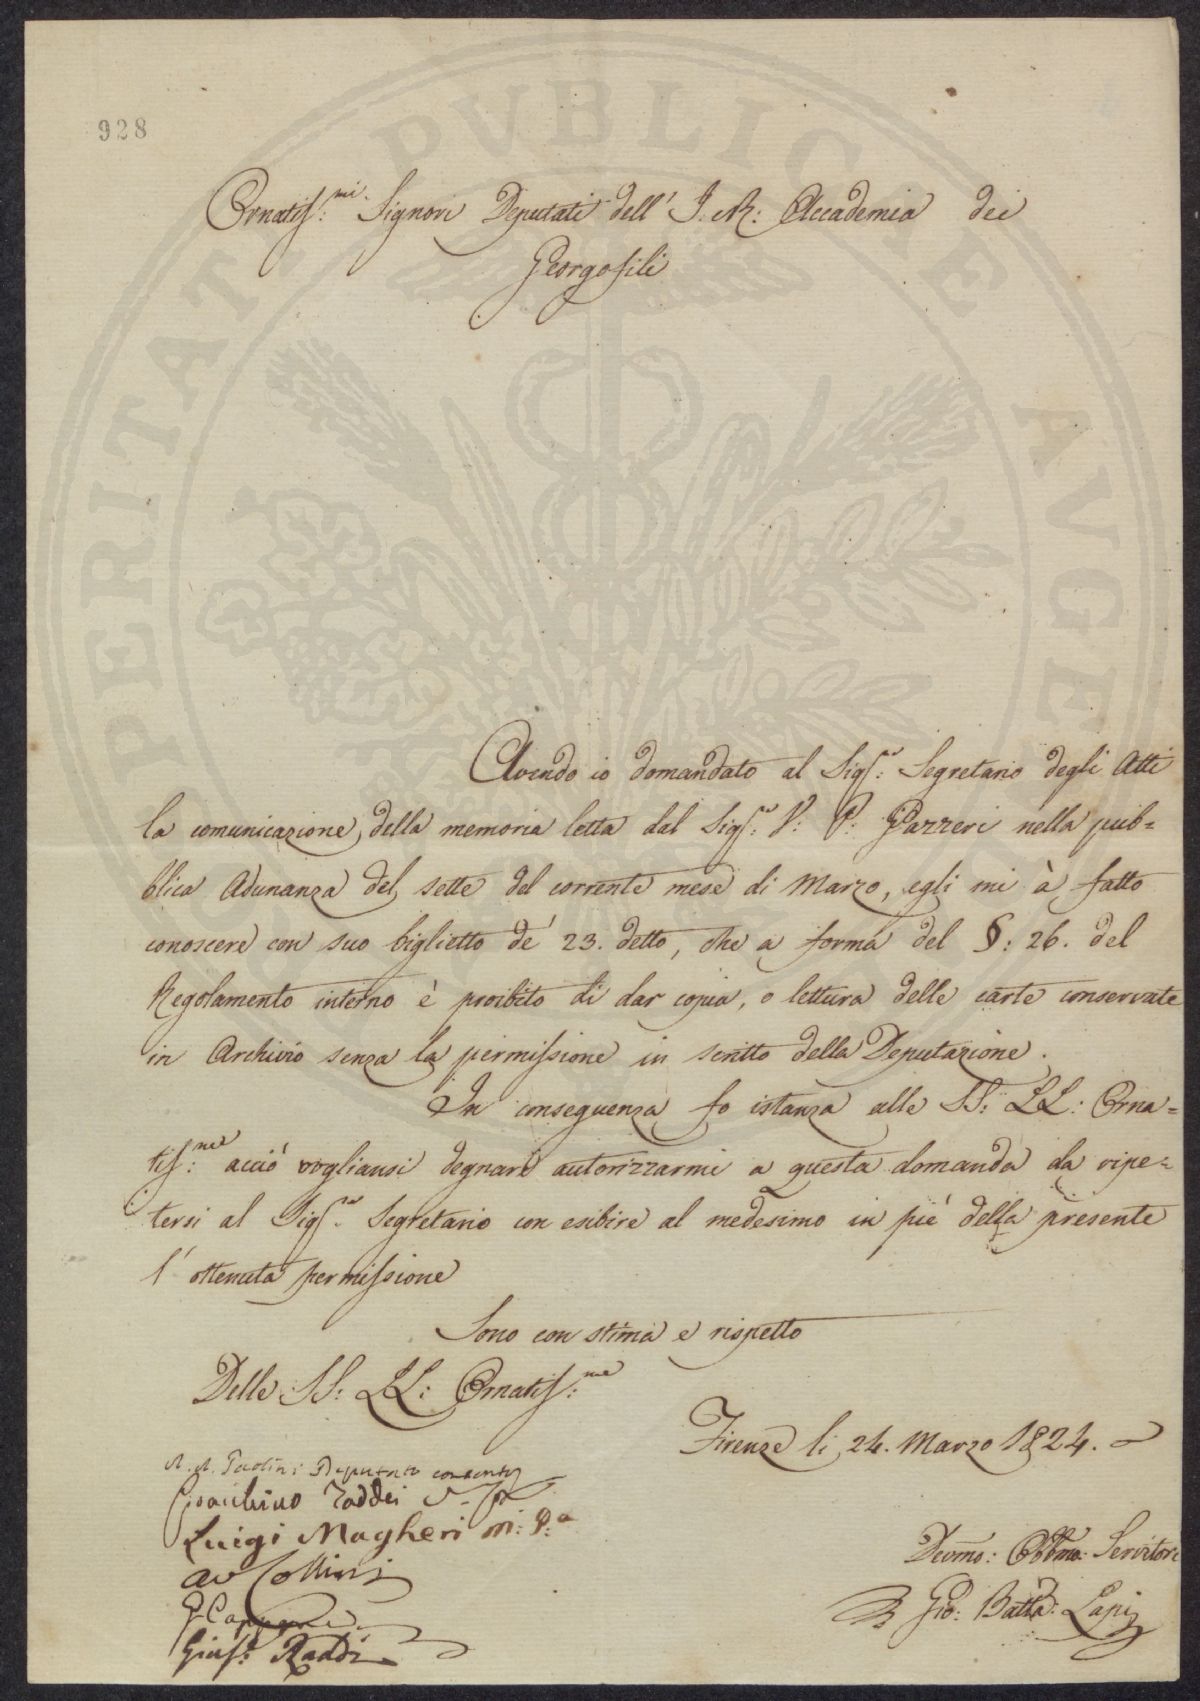 928
Ornatiss:mi Signori Deputati dell' I. R: Accademia dei
Georgofili
Avendo io domandato al Sigr: Segretario degli Atti
la comunicazione della memoria letta dal Sigr: V: P: Gazzeri nella pub=
blica Adunanza del sette del corrente mese di Marzo, egli mi à fatto
conoscere con suo biglietto de' 23. detto, che a forma del §: 26. del
Regolamento interno è proibito di dar copia, o lettura delle carte conservate
in Archivio senza la permissione in scritto della Deputazione.
In conseguenza fo istanza alle SS: LL: Orna=
tiss:me acciò vogliansi degnare autorizzarmi a questa domanda da ripe=
tersi al Sigr. Segretario con esibire al medesimo in piè della presente
l' ottenuta permissione
Sono con stima e rispetto
Delle SS: LL: Ornatiss:me
Firenze li 24. Marzo 1824.
Paolini Deputato consente
Gioacchino Taddei
Luigi Magheri m: p:a
av Collini
G Capponi
Gius: Raddi
Devmo: Obbmo: Servitore
Gio: Batta: Lapi
PUBLICAE
AUGE
PERITATI